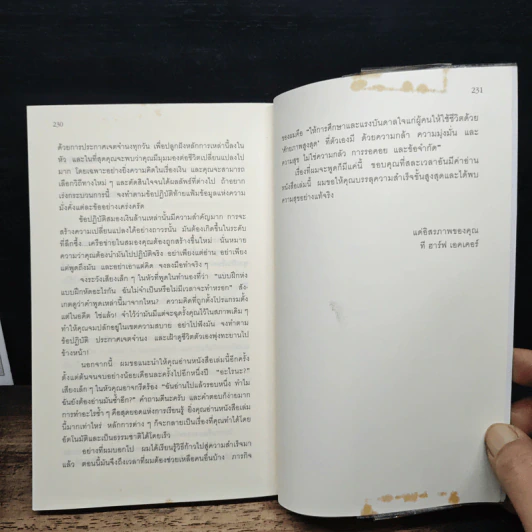 230
ด้วยการประกาศเจตจำนงทุกวัน เพื่อปลูกฝังหลักการเหล่านี้ลงใน
หัว และในที่สุดคุณจะพบว่าคุณมีมุมมองต่อชีวิตเปลี่ยนแปลงไป
มาก โดยเฉพาะอย่างยิ่งความคิดในเรื่องเงิน และคุณจะสามารถ
เลือกวิถีทางใหม่ ๆ และตัดสินใจจนได้ผลลัพธ์ที่ต่างไป ถ้าอยาก
เร่งกระบวนการนี้ จงทำตามข้อปฏิบัติท้ายแฟ้มข้อมูลแห่งความ
มั่งคั่งแต่ละข้ออย่างเคร่งครัด
ข้อปฏิบัติสมองเงินล้านเหล่านั้นมีความสำคัญมาก การจะ
สร้างความเปลี่ยนแปลงได้อย่างถาวรนั้น มันต้องเกิดขึ้นในระดับ
ที่ลึกซึ้ง...เครือข่ายในสมองคุณต้องถูกสร้างขึ้นใหม่ นั่นหมาย
ความว่าคุณต้องนำมันไปปฏิบัติจริง อย่าเพียงแค่อ่าน อย่าเพียง
แค่พูดถึงมัน และอย่าเอาแต่คิด จงลงมือทำจริง ๆ
จงระวังเสียงเล็ก ๆ ในหัวที่พูดในทำนองที่ว่า "แบบฝึกห่ง
แบบฝึกหัดอะไรกัน ฉันไม่จำเป็นหรือไม่มีเวลาจะทำหรอก" สัง-
เกตดูว่าคำพูดเหล่านี้มาจากไหน? ความคิดที่ถูกตั้งโปรแกรมตั้ง
แต่ในอดีต ใช่แล้ว! จำไว้ว่ามันมีแต่จะฉุดรั้งคุณไว้ในสภาพเดิม ๆ
ทำให้คุณจมปลักอยู่ในเขตความสบาย อย่าไปฟังมัน จงทำตาม
ข้อปฏิบัติ ประกาศเจตจำนง และเฝ้าดูชีวิตตัวเองพุ่งทะยานไป
ข้างหน้า!
นอกจากนี้ ผมขอแนะนำให้คุณอ่านหนังสือเล่มนี้อีกครั้ง
ตั้งแต่ต้นจนจบอย่างน้อยเดือนละครั้งไปอีกหนึ่งปี "อะไรนะ?"
เสียงเล็ก ๆ ในหัวคุณอาจกรีดร้อง "ฉันอ่านไปแล้วรอบหนึ่ง ทำไม
ฉันยังต้องอ่านมันซ้ำอีก?" คำถามดีนะครับ และคำตอบก็ง่ายมาก
การทำอะไรซ้ำ ๆ คือสุดยอดแห่งการเรียนรู้ ยิ่งคุณอ่านหนังสือเล่ม
นี้มากเท่าไหร่ หลักการต่าง ๆ ก็จะกลายเป็นเรื่องที่คุณทำได้โดย
อัตโนมัติและเป็นธรรมชาติได้โดยเร็ว
อย่างที่ผมบอกไป ผมได้เรียนรู้วิธีก้าวไปสู่ความสำเร็จมา
แล้ว ตอนนี้มันจึงถึงเวลาที่ผมต้องช่วยเหลือคนอื่นบ้าง ภารกิจ
231
ของผมคือ "ให้การศึกษาและแรงบันดาลใจแก่ผู้คนให้ใช้ชีวิตด้วย
'ศักยภาพสูงสุด' ที่ตัวเองมี ด้วยความกล้า ความมุ่งมั่น และ
ความสุข ไม่ใช่ความกลัว การรอคอย และข้อจำกัด"
เรื่องที่ผมจะพูดก็มีแค่นี้ ขอบคุณที่สละเวลาอันมีค่าอ่าน
หนังสือเล่มนี้ ผมขอให้คุณบรรลุความสำเร็จขั้นสูงสุดและได้พบ
ความสุขอย่างแท้จริง
แด่อิสรภาพของคุณ
ที ฮาร์ฟ เอคเคอร์